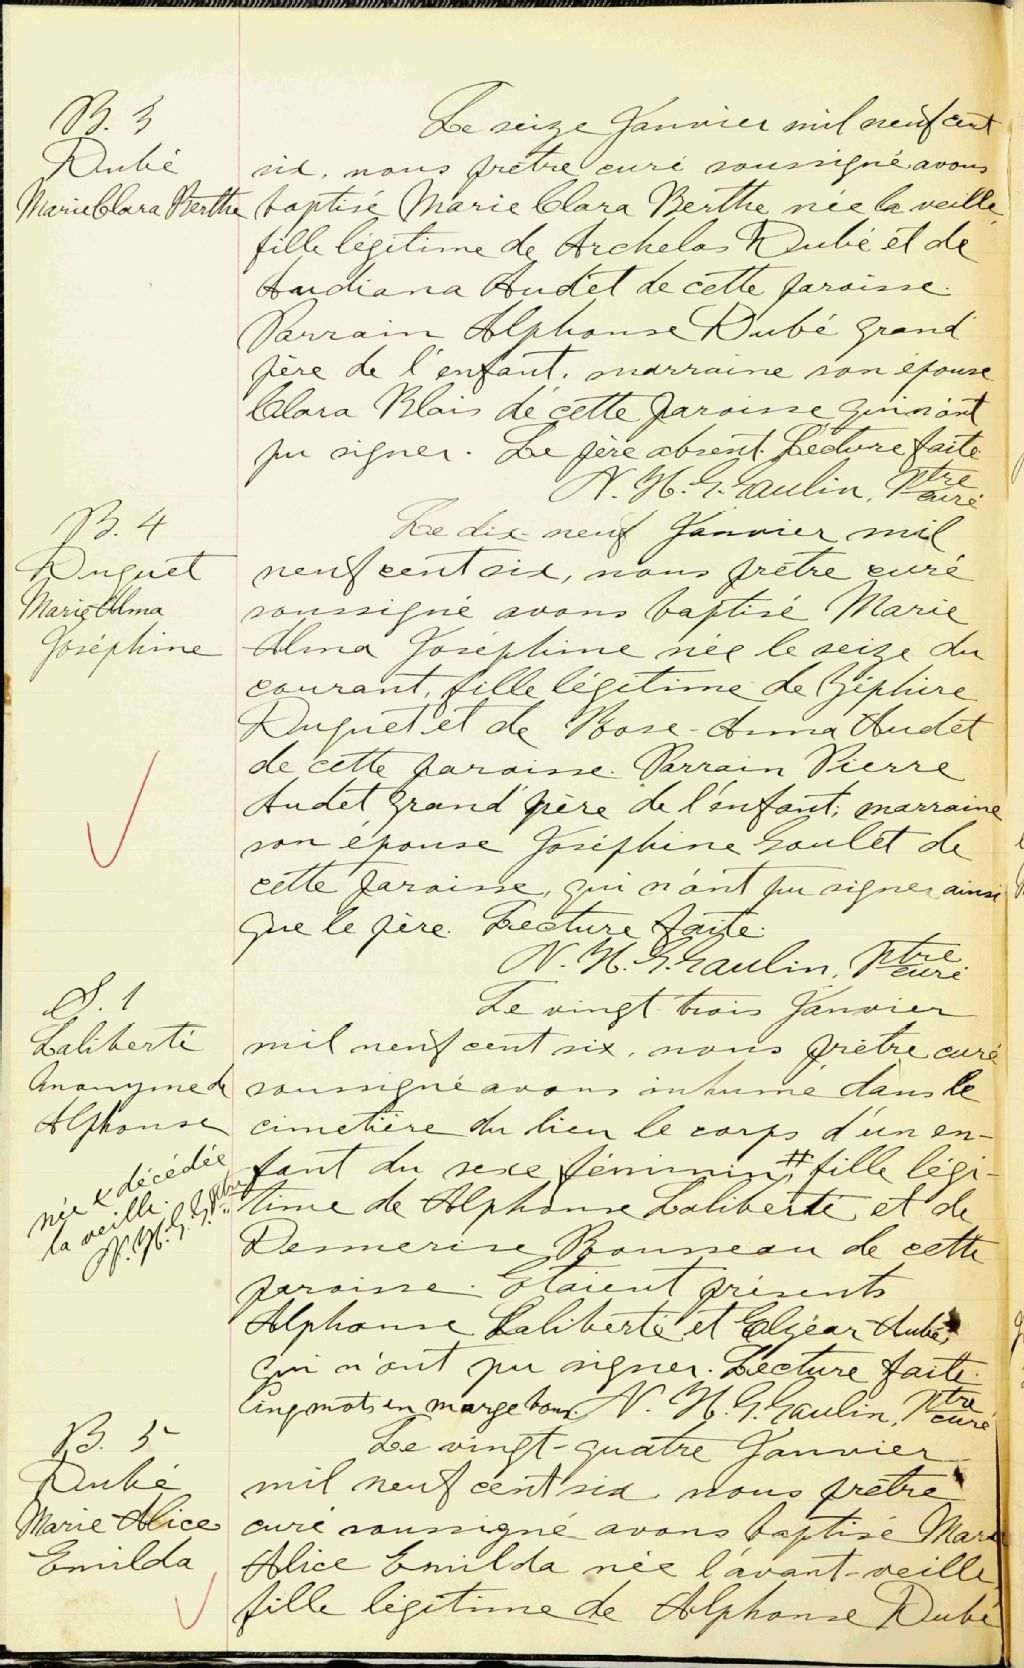 B. 3
Dubé
Marie Clara Berthe
Le seize Janvier mil neuf cent
six, nous prêtre curé soussigné avons
baptisé Marie Clara Berthe née la veille,
fille légitime de Archelas Dubé et de
Audiana Audet de cette paroisse.
Parrain Alphonse Dubé grand
père de l'enfant, marraine son épouse
Clara Blais de cette paroisse qui n'ont
pu signer. Le père absent. Lecture faite.
N. H. G. Gaulin, Ptre
curé
B. 4
Duguet
Marie Alma
Joséphine
Le dix-neuf Janvier mil
neuf cent six, nous prêtre curé
soussigné avons baptisé Marie
Alma Joséphine née le seize du
courant, fille légitime de Zéphire
Duguet et de Rose-Anna Audet
de cette paroisse. Parrain Pierre
Audet grand'père de l'enfant; marraine
son épouse Joséphine Goulet de
cette paroisse, qui n'ont pu signer ainsi
que le père. Lecture faite.
N. H. G. Gaulin, Ptre
curé
S. 1
Laliberté
Anonyme de
Alphonse
née & décédée
la veille
N. H. G. G. Ptre
Le vingt-trois Janvier
mil neuf cent six, nous prêtre curé
soussigné avons inhumé dans le
cimetière du lieu le corps d'un en-
fant du sexe féminin, # fille légi-
time de Alphonse Laliberté et de
Desmerise Rousseau de cette
paroisse. Etaient présents
Alphonse Laliberté et Elzéar Aubé,
qui n'ont pu signer. Lecture faite.
Cinq mots en marge bons. N. H. G. Gaulin, Ptre
curé
B. 5
Dubé
Marie Alice
Emilda
Le vingt-quatre Janvier
mil neuf cent six, nous prêtre
curé soussigné avons baptisé Marie
Alice Emilda née l'avant-veille,
fille légitime de Alphonse Dubé